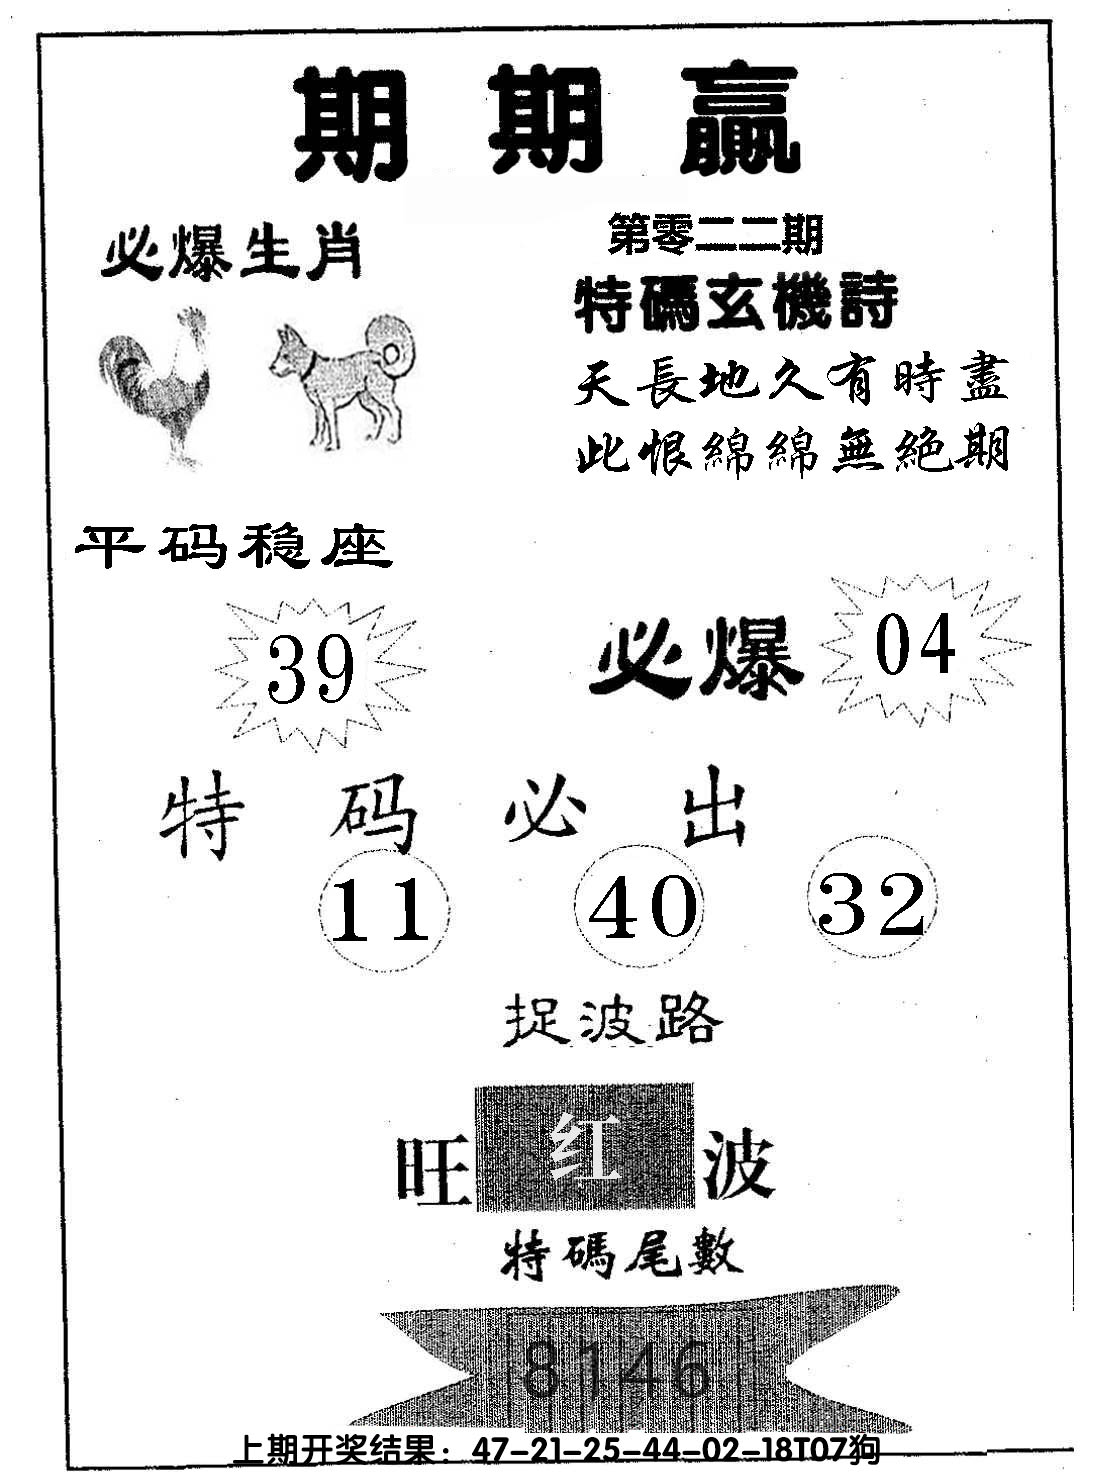 期期贏
必爆生肖
第零二二期
特碼玄機詩
天長地久有時盡
此恨綿綿無絕期
平码稳座
39
必爆 04
特码必出
11 40 32
捉波路
旺 红 波
特碼尾數
8146
上期开奖结果：47-21-25-44-02-18T07狗